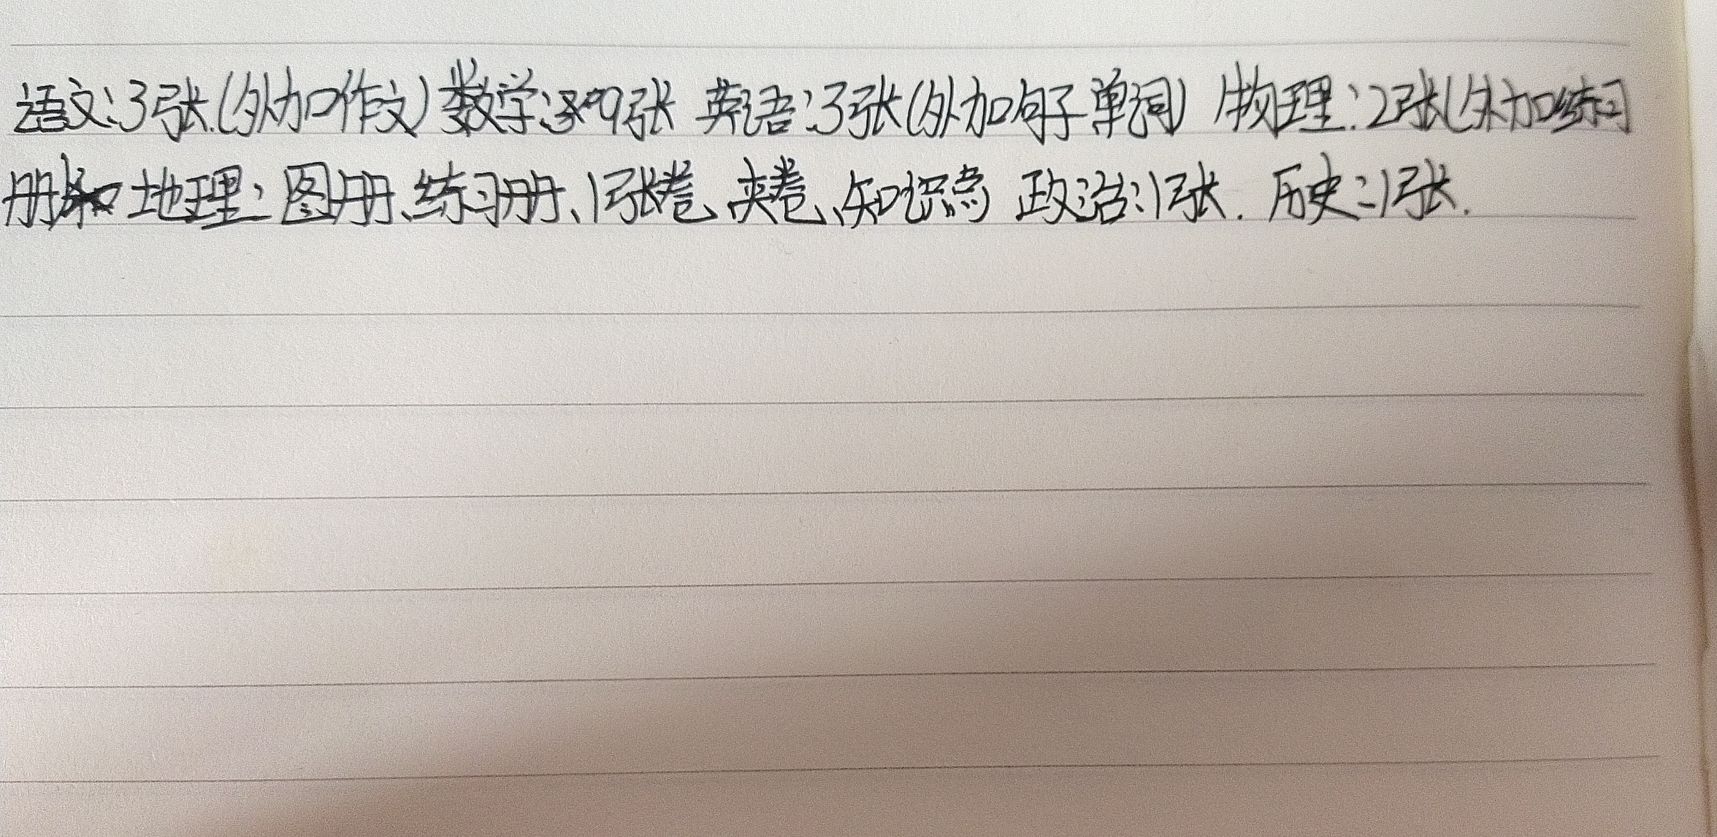 语文:3张(外加作文)数学:9张 英语:3张(外加句子单词) 物理:2张(外加练习
册 地理:图册、练习册、1张卷、夹卷、知识点 政治:1张. 历史:1张.